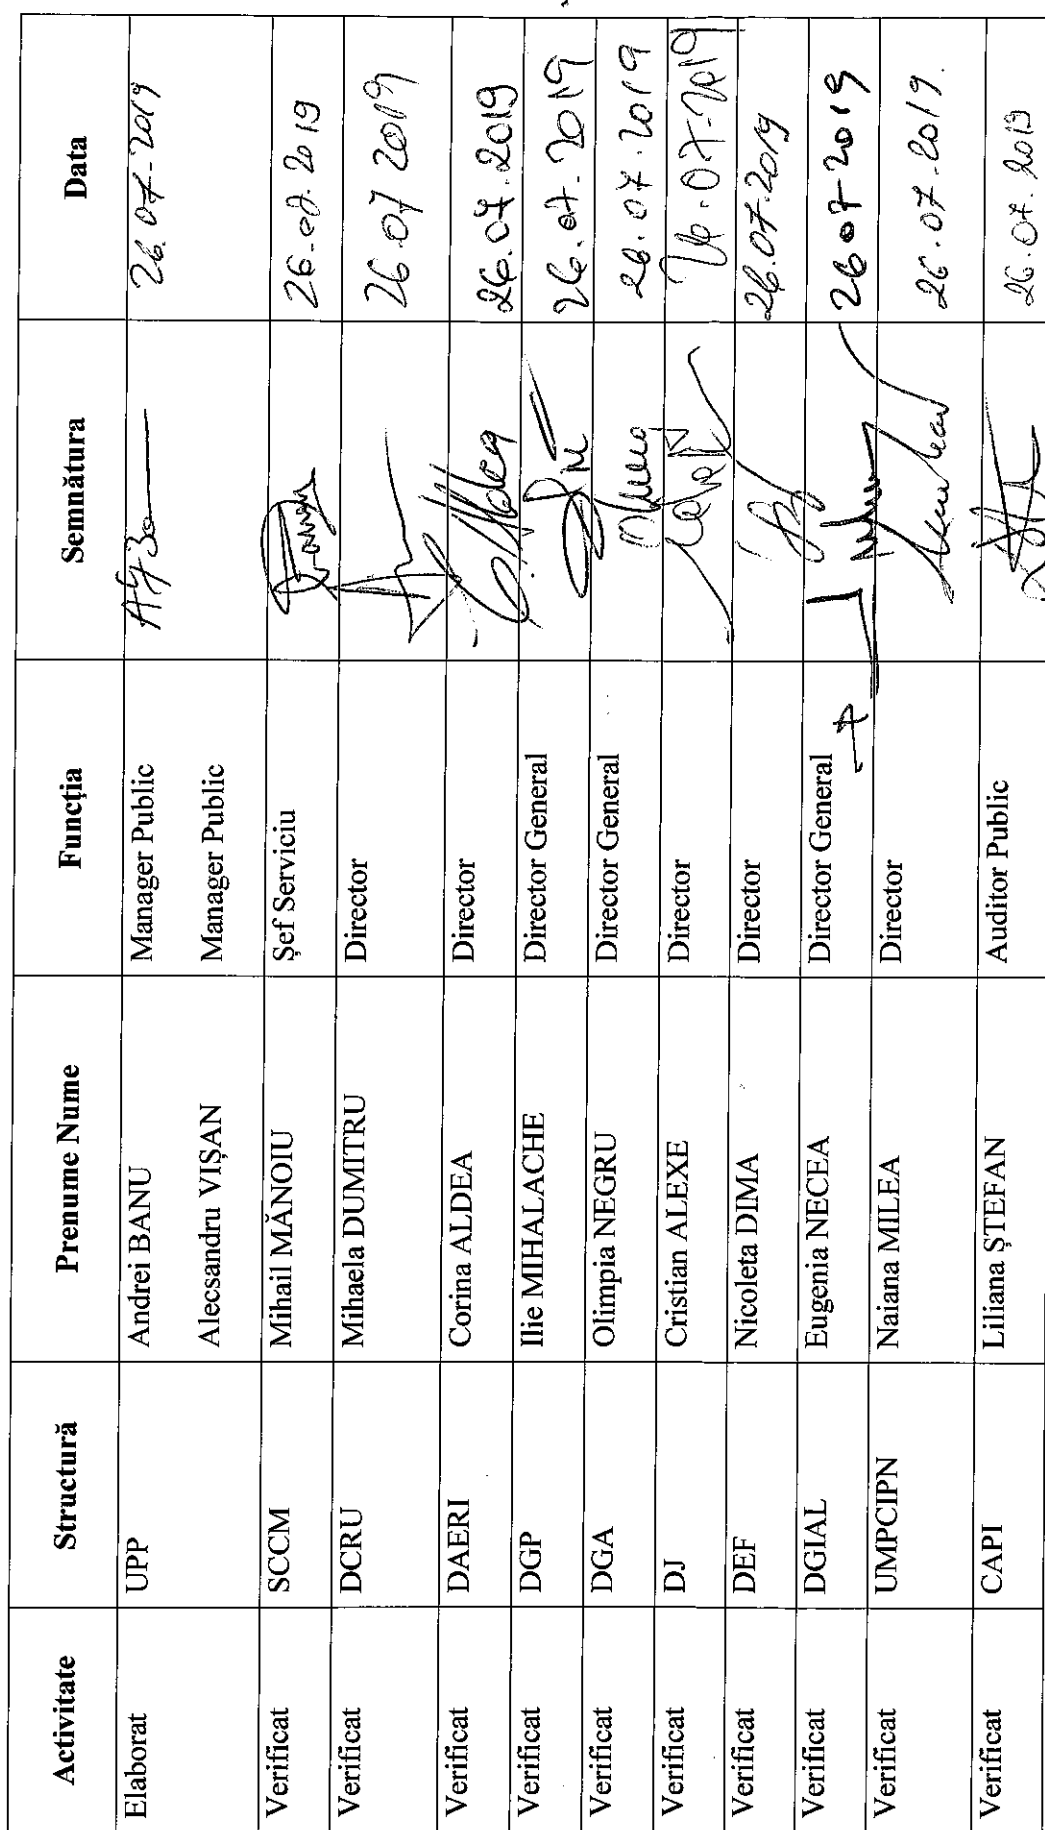 Activitate Structură Prenume Nume Funcția Semnătura Data
Elaborat UPP Andrei BANU Manager Public 26.07.2019
Alecsandru VIȘAN Manager Public
Verificat SCCM Mihail MĂNOIU Șef Serviciu 26.07.2019
Verificat DCRU Mihaela DUMITRU Director 26.07 2019
Verificat DAERI Corina ALDEA Director 26.07.2019
Verificat DGP Ilie MIHALACHE Director General 26.07.2019
Verificat DGA Olimpia NEGRU Director General 26.07.2019
Verificat DJ Cristian ALEXE Director 26.07.2019
Verificat DEF Nicoleta DIMA Director 26.07.2019
Verificat DGIAL Eugenia NECEA Director General 26 07 2019
Verificat UMPCIPN Naiana MILEA Director 26.07.2019.
Verificat CAPI Liliana ȘTEFAN Auditor Public 26.07.2019